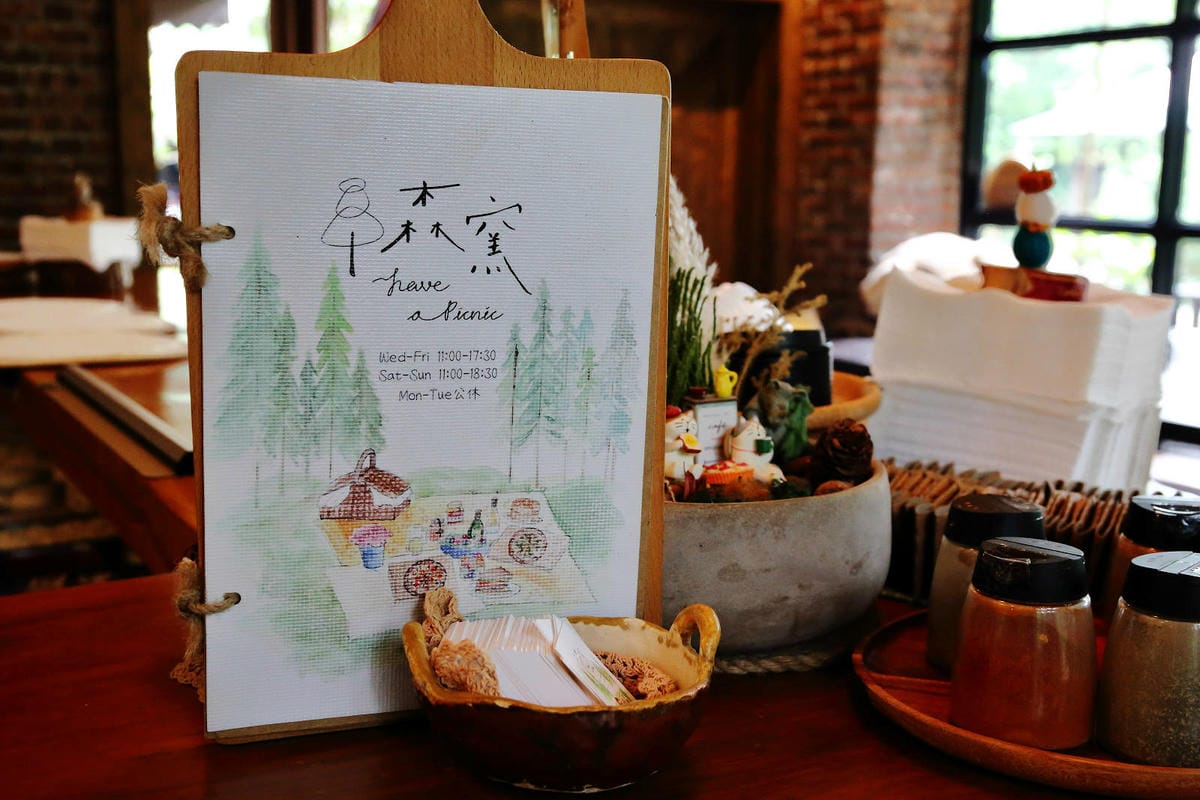 森窯
have
a Picnic
Wed-Fri 11:00-17:30
Sat-Sun 11:00-18:30
Mon-Tue公休